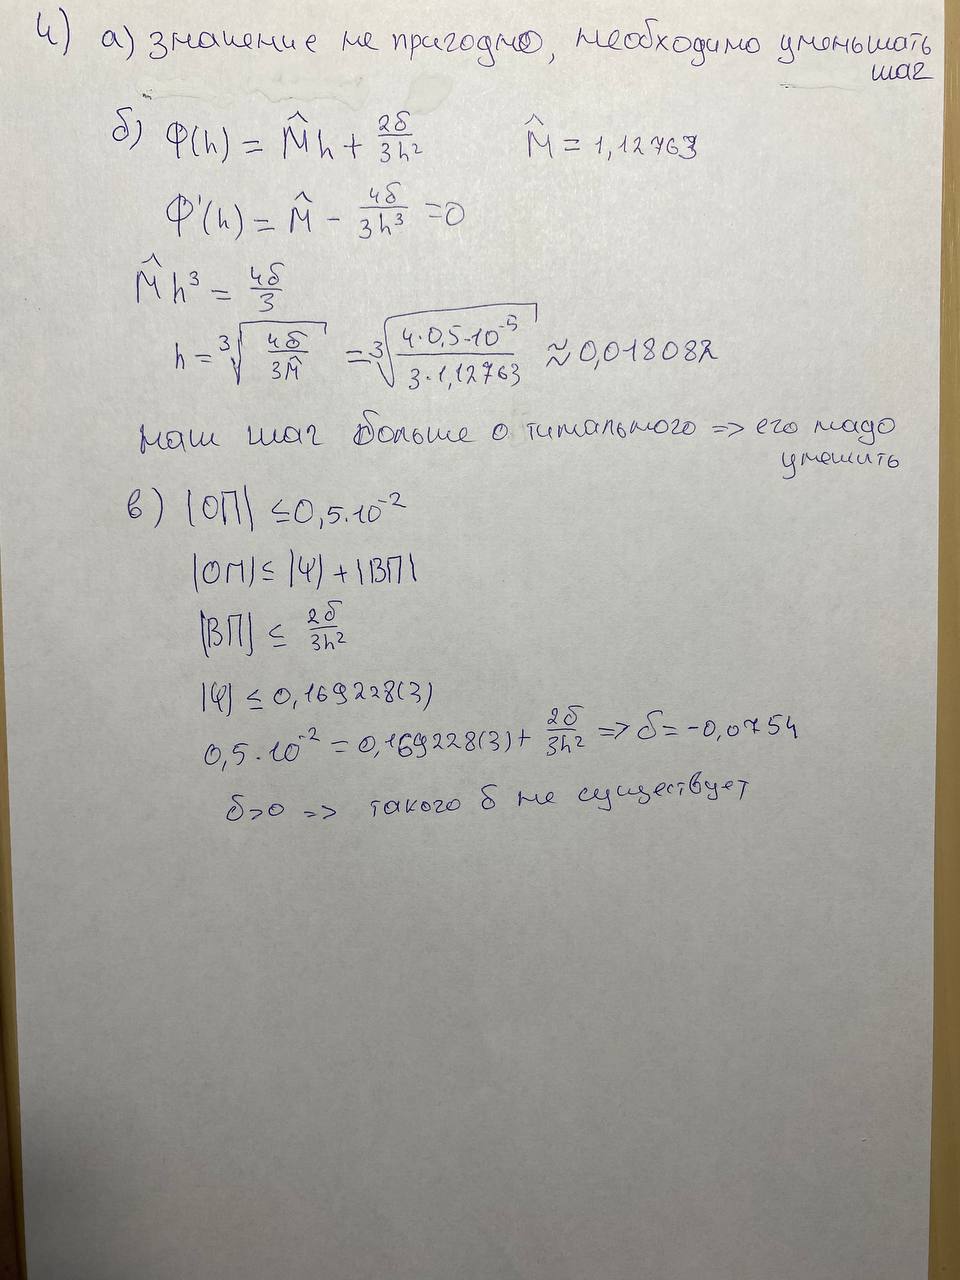 4) а) значение не пригодно, необходимо уменьшать
шаг
б) Φ(h) = M̂h + 2δ/3h² M̂ = 1,12763
Φ'(h) = M̂ - 4δ/3h³ = 0
M̂h³ = 4δ/3
h = ∛(4δ/3M̂) = ∛(4·0,5·10⁻⁵/3·1,12763) ≈ 0,018082
наш шаг больше о тимального => его надо
умешить
в) |ОП| ≤ 0,5·10⁻²
|ОП| ≤ |Ψ| + |ВП|
|ВП| ≤ 2δ/3h²
|Ψ| ≤ 0,169228(3)
0,5·10⁻² = 0,169228(3) + 2δ/3h² => δ = -0,0754
δ>0 => такого δ не существует